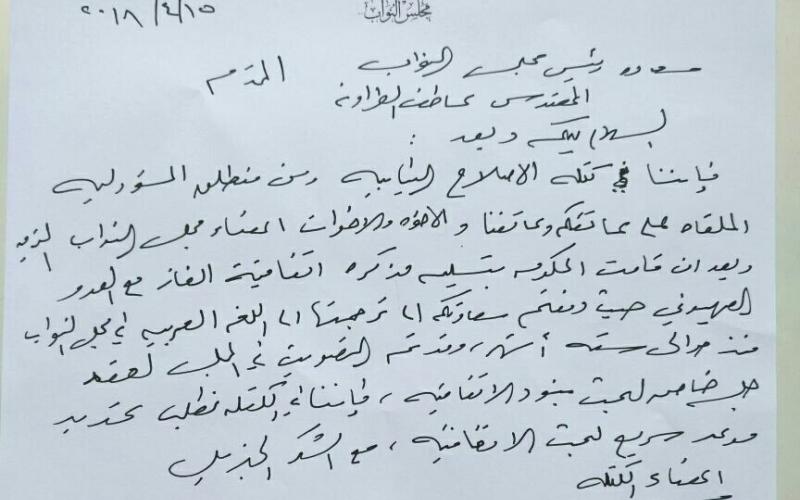 مجلس النواب
٢٠١٨/٤/١٥
سعادة رئيس مجلس النواب
المهندس عاطف الطراونه المحترم
السلام عليكم وبعد :
فإننا في كتلة الاصلاح النيابيه ومن منطلق المسؤوليه
الملقاه على عاتقكم وعاتقنا و الاخوه والاخوات اعضاء مجلس النواب
وبعد ان قامت الحكومه بتسليم مذكره اتفاقية الغاز مع العدو
الصهيوني حيث دفعتم سعادتكم الى ترجمتها الى اللغه العربيه في مجلس النواب
منذ حوالي سته أشهر، وقد تم التصويت في المجلس لعقد
جلسه خاصه لبحث بنود الاتفاقيه، فإننا في الكتله نطلب تحديد
موعد سريع لبحث الاتفاقيه، مع الشكر الجزيل
اعضاء الكتله